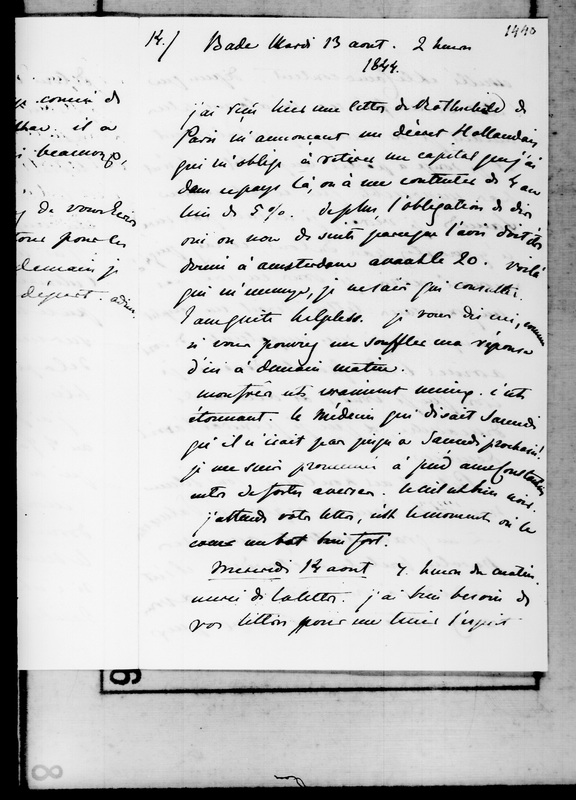 1440
14./ Bade Mardi 13 aout. 2 heures
1844
j'ai reçu hier une lettre de Rothschild de
Paris m'annonçant un décret Hollandais
qui m'oblige à retirer un capital que j'ai
dans ce pays là, ou à me contenter de 4 au
lieu de 5 %. de plus l'obligation de dire
oui ou non de suite parceque l'avis doit être
donné à amsterdam avant le 20. voilà
qui m'ennuye, je ne sais qui consulter.
I am quite helpless. je vous dis ceci, comme
si vous pouviez me souffler ma réponse
d'ici à demain matin.
mon frère est vraiment mieux. c'est
étonnant. le Médecin qui disait Samedi
qu'il n'irait pas jusqu'à Samedi prochain!
je me suis promenée à pied avec Constantin
entre de fortes averses. le ciel est bien noir.
j'attends votre lettre, c'est le moment où le
coeur me bat bien fort.
Mercredi 14 aout 7 heures du matin.
merci de la lettre. j'ai bien besoin de
vos lettres pour me tenir l'esprit
de
il a
beaucoup,
de vous
pour les
demain je
départ adieu.
6
8